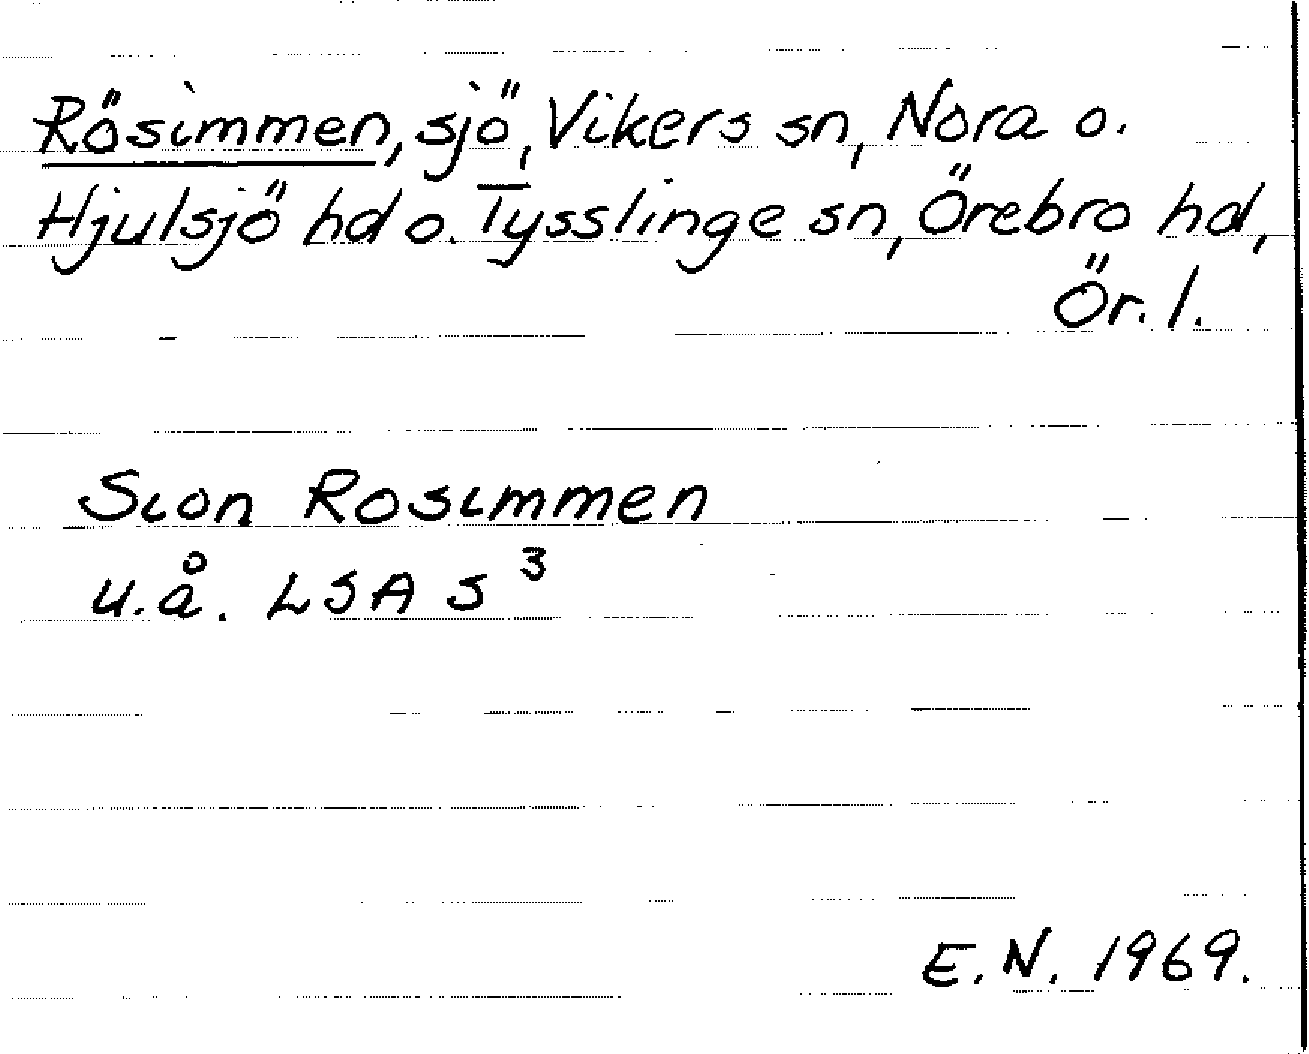 Rösimmen, sjö, Vikers sn, Nora o.
Hjulsjö hd o. Tysslinge sn, Örebro hd,
Ör. l.
Sion Rosimmen
u.å. LSA S 3
E.N. 1969.